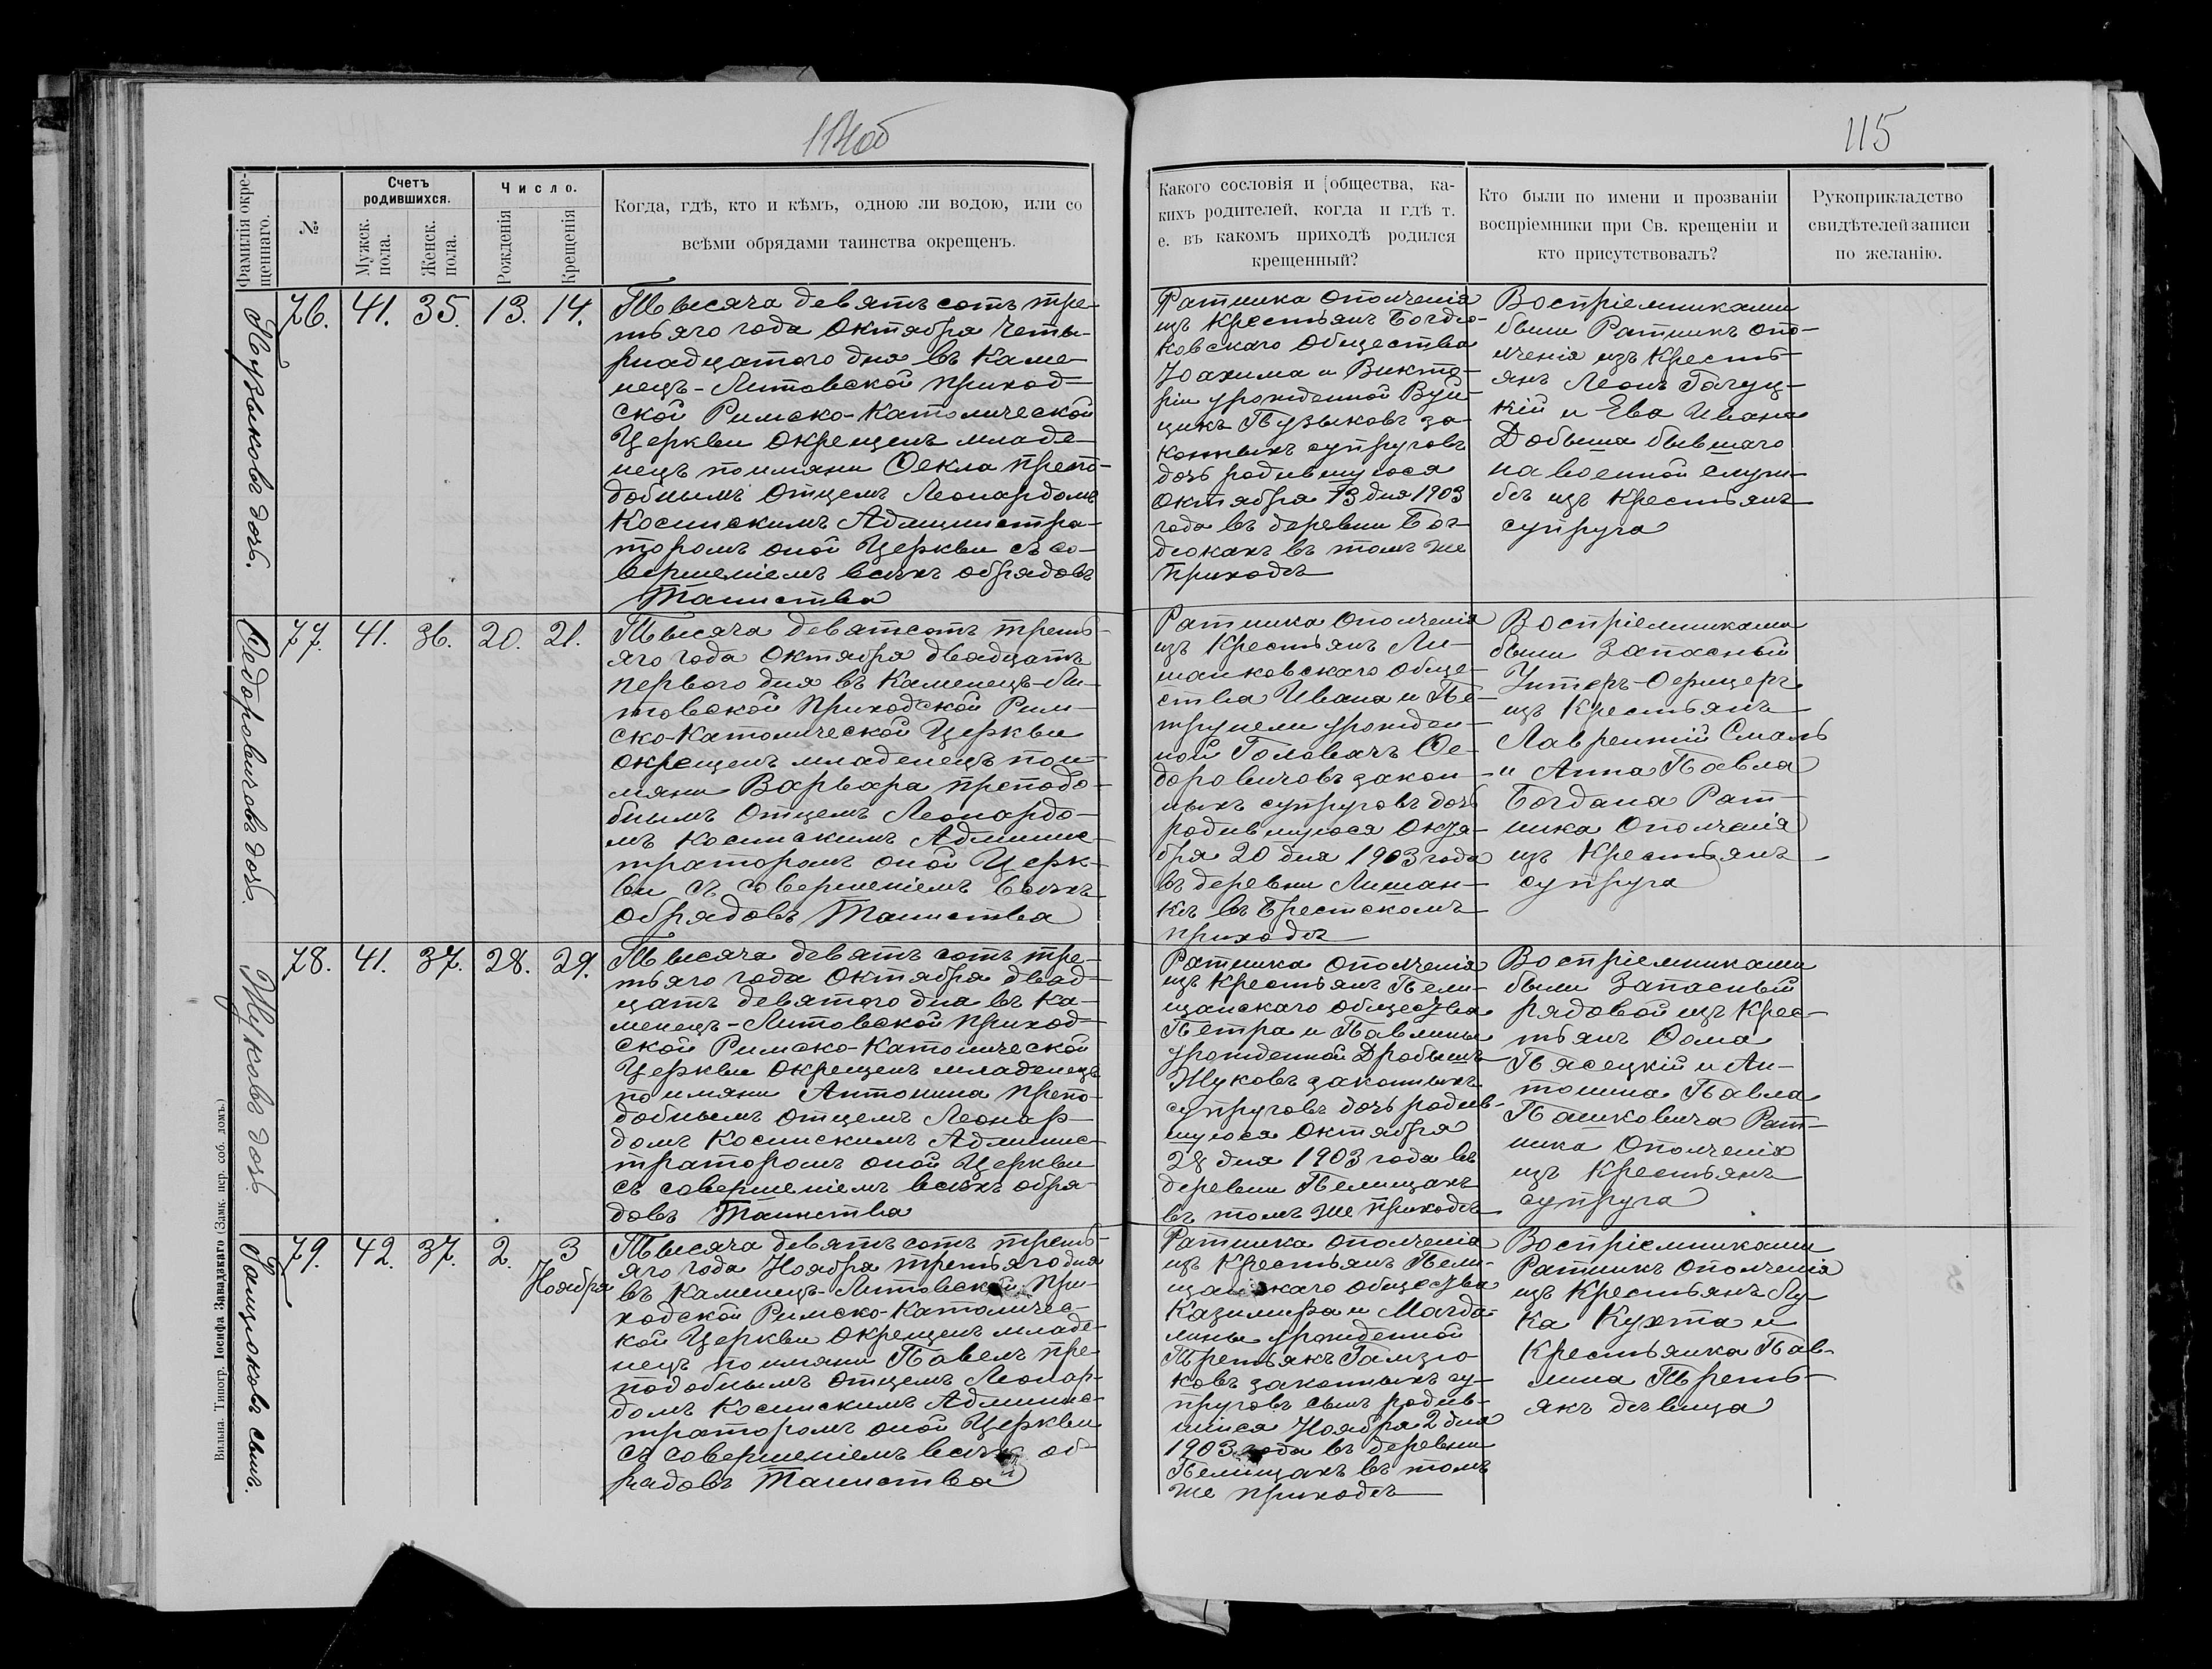 114об
115
Фамилія окре-
щеннаго.
№
Счетъ
родившихся.
Мужск.
пола.
Женск.
пола.
Число.
Рожденія
Крещенія
Когда, гдѣ, кто и кѣмъ, одною ли водою, или со
всѣми обрядами таинства окрещенъ.
Какого сословія и общества, ка-
кихъ родителей, когда и гдѣ т.
е. въ какомъ приходѣ родился
крещенный?
Кто были по имени и прозваніи
воспріемники при Св. крещеніи и
кто присутствовалъ?
Рукоприкладство
свидѣтелей записи
по желанію.
Пузыковъ дочь.
76.
41.
35.
13.
14.
Тысяча девятьсотъ тре-
тьяго года Октября четы-
рнадцатого дня въ Каме-
нецъ-Литовской приход-
ской Римско-Католической
Церкви окрещенъ младе-
нецъ поимяни Ѳекла препо-
добнымъ Отцемъ Леонардомъ
Косинскимъ Администра-
торомъ оной Церкви съ со-
вершеніемъ всѣхъ обрядовъ
Таинства
Ратника ополченія
изъ Крестьянъ Богдю-
ковскаго Общества
Іоахима и Викто-
ріи урожденной Вуй-
цикъ Пузыковъ за-
конныхъ супруговъ
дочь родившуюся
Октября 13 дня 1903
года въ деревни Бог-
дюкахъ въ томъ же
приходѣ
Воспріемниками
были Ратникъ опо-
лченія изъ Кресть-
янъ Леонъ Гогуц-
кій и Ева Ивана
Добыша бывшаго
на военной служ-
бѣ изъ Крестьянъ
супруга
Ѳедоровичовъ дочь.
77.
41.
36.
20.
21.
Тысяча девятсотъ треть-
яго года Октября двадцать
перваго дня въ Каменецъ-Ли-
товской Приходской Рим-
ско-Католической Церкви
окрещенъ младенецъ пои-
мяни Варвара преподо-
бнымъ Отцемъ Леонардо-
мъ Косинскимъ Админис-
траторомъ оной Церк-
ви съ совершеніемъ всѣхъ
обрядовъ Таинства
Ратника ополченія
изъ Крестьянъ Ли-
шанковскаго обще-
ства Ивана и Пе-
трунели урожден-
ной Головачъ Ѳе-
доровичовъ закон-
ныхъ супруговъ дочь
родившуюся Октя-
бря 20 дня 1903 года
въ деревни Лишан-
кѣ въ Брестскомъ
приходѣ
Воспріемниками
были Запасный
Унтеръ-Офицеръ
изъ Крестьянъ
Лаврентій Смаль
и Анна Павла
Богдана Рат-
ника Ополченія
изъ Крестьянъ
супруга
Жуковъ дочь
78.
41.
37.
28.
29.
Тысяча девятьсотъ тре-
тьяго года Октября двад-
цать девятого дня въ Ка-
менецъ-Литовской приход-
ской Римско-Католической
Церкви окрещенъ младенецъ
поимяни Антонина препо-
добнымъ Отцемъ Леонар-
домъ Косинскимъ Админис-
траторомъ оной Церкви
съ совершеніемъ всѣхъ обря-
довъ Таинства
Ратника ополченія
изъ Крестьянъ Пели-
щанскаго общества
Петра и Павлины
урожденной Дробышъ
Жуковъ законныхъ
супруговъ дочь родив-
шуюся Октября
28 дня 1903 года въ
деревни Пелищахъ
въ томъ же приходѣ
Воспріемниками
были Запасный
рядовой изъ Крес-
тьянъ Ѳома
Пясецкій и Ан-
тонина Павла
Пашковича Рат-
ника Ополченія
изъ Крестьянъ
супруга
Гамзюковъ сынъ.
79.
42.
37.
2.
3
Ноября
Тысяча девятьсотъ треть-
яго года Ноября третьяго дня
въ Каменецъ-Литовской при-
ходской Римско-Католичес-
кой Церкви окрещенъ младе-
нецъ поимяни Павелъ пре-
подобнымъ Отцемъ Леонар-
домъ Косинскимъ Админис-
траторомъ оной Церкви
съ совершеніемъ всѣхъ об-
рядовъ Таинства
Ратника ополченія
изъ Крестьянъ Пели-
щанскаго общества
Казимира и Магда-
лины урожденной
Третьякъ Гамзю-
ковъ законныхъ су-
пруговъ сынъ родив-
шійся Ноября 2 дня
1903 года въ деревни
Пелищахъ въ томъ
же приходѣ
Воспріемниками
Ратникъ ополченія
изъ Крестьянъ Лу-
ка Кухта и
Крестьянка Пав-
лина Треть-
якъ дѣвица
Вильна. Типогр. Іосифа Завадзкаго (Замк. пер. соб. домъ.)